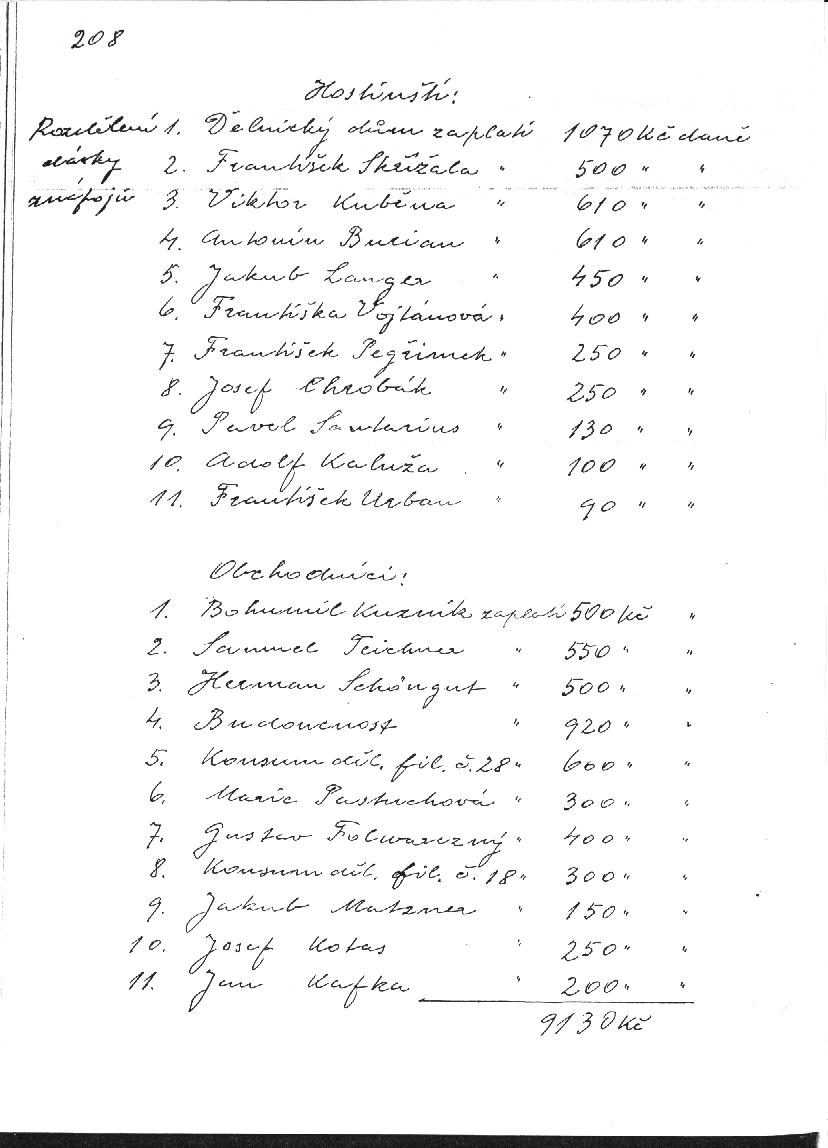 208
Hostinští:
Rozdělení 1. Dělnický dům zaplatí 1070 Kč daně
dávky 2. František Skřížala " 500 " "
z nápojů 3. Viktor Kuběna " 610 " "
4. Antonín Burian " 610 " "
5. Jakub Langer " 450 " "
6. Františka Vojtánová " 400 " "
7. František Pegřimek " 250 " "
8. Josef Chrobák " 250 " "
9. Pavel Santarius " 130 " "
10. Adolf Kaluža " 100 " "
11. František Urban " 90 " "
Obchodníci:
1. Bohumil Kuzník zaplatí 500 Kč "
2. Samuel Teichner " 550 " "
3. Herman Schöngut " 500 " "
4. Budoucnost " 920 " "
5. Konsum děl. fil. č. 28 " 600 " "
6. Marie Pastuchová " 300 " "
7. Gustav Folwarczný " 400 " "
8. Konsum děl. fil. č. 18 " 300 " "
9. Jakub Matzner " 150 " "
10. Josef Kotas " 250 " "
11. Jan Kafka " 200 " "
9130 Kč